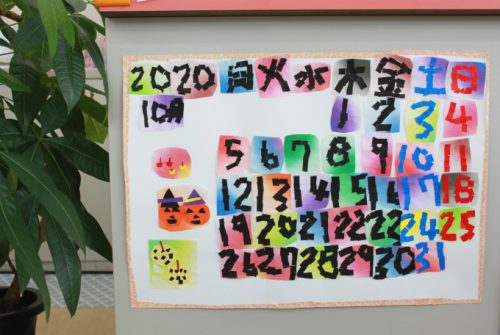 2020 月 火 水 木 金 土 日
10月 1 2 3 4
5 6 7 8 9 10 11
12 13 14 15 16 17 18
19 20 21 22 22 24 25
26 27 28 29 30 31